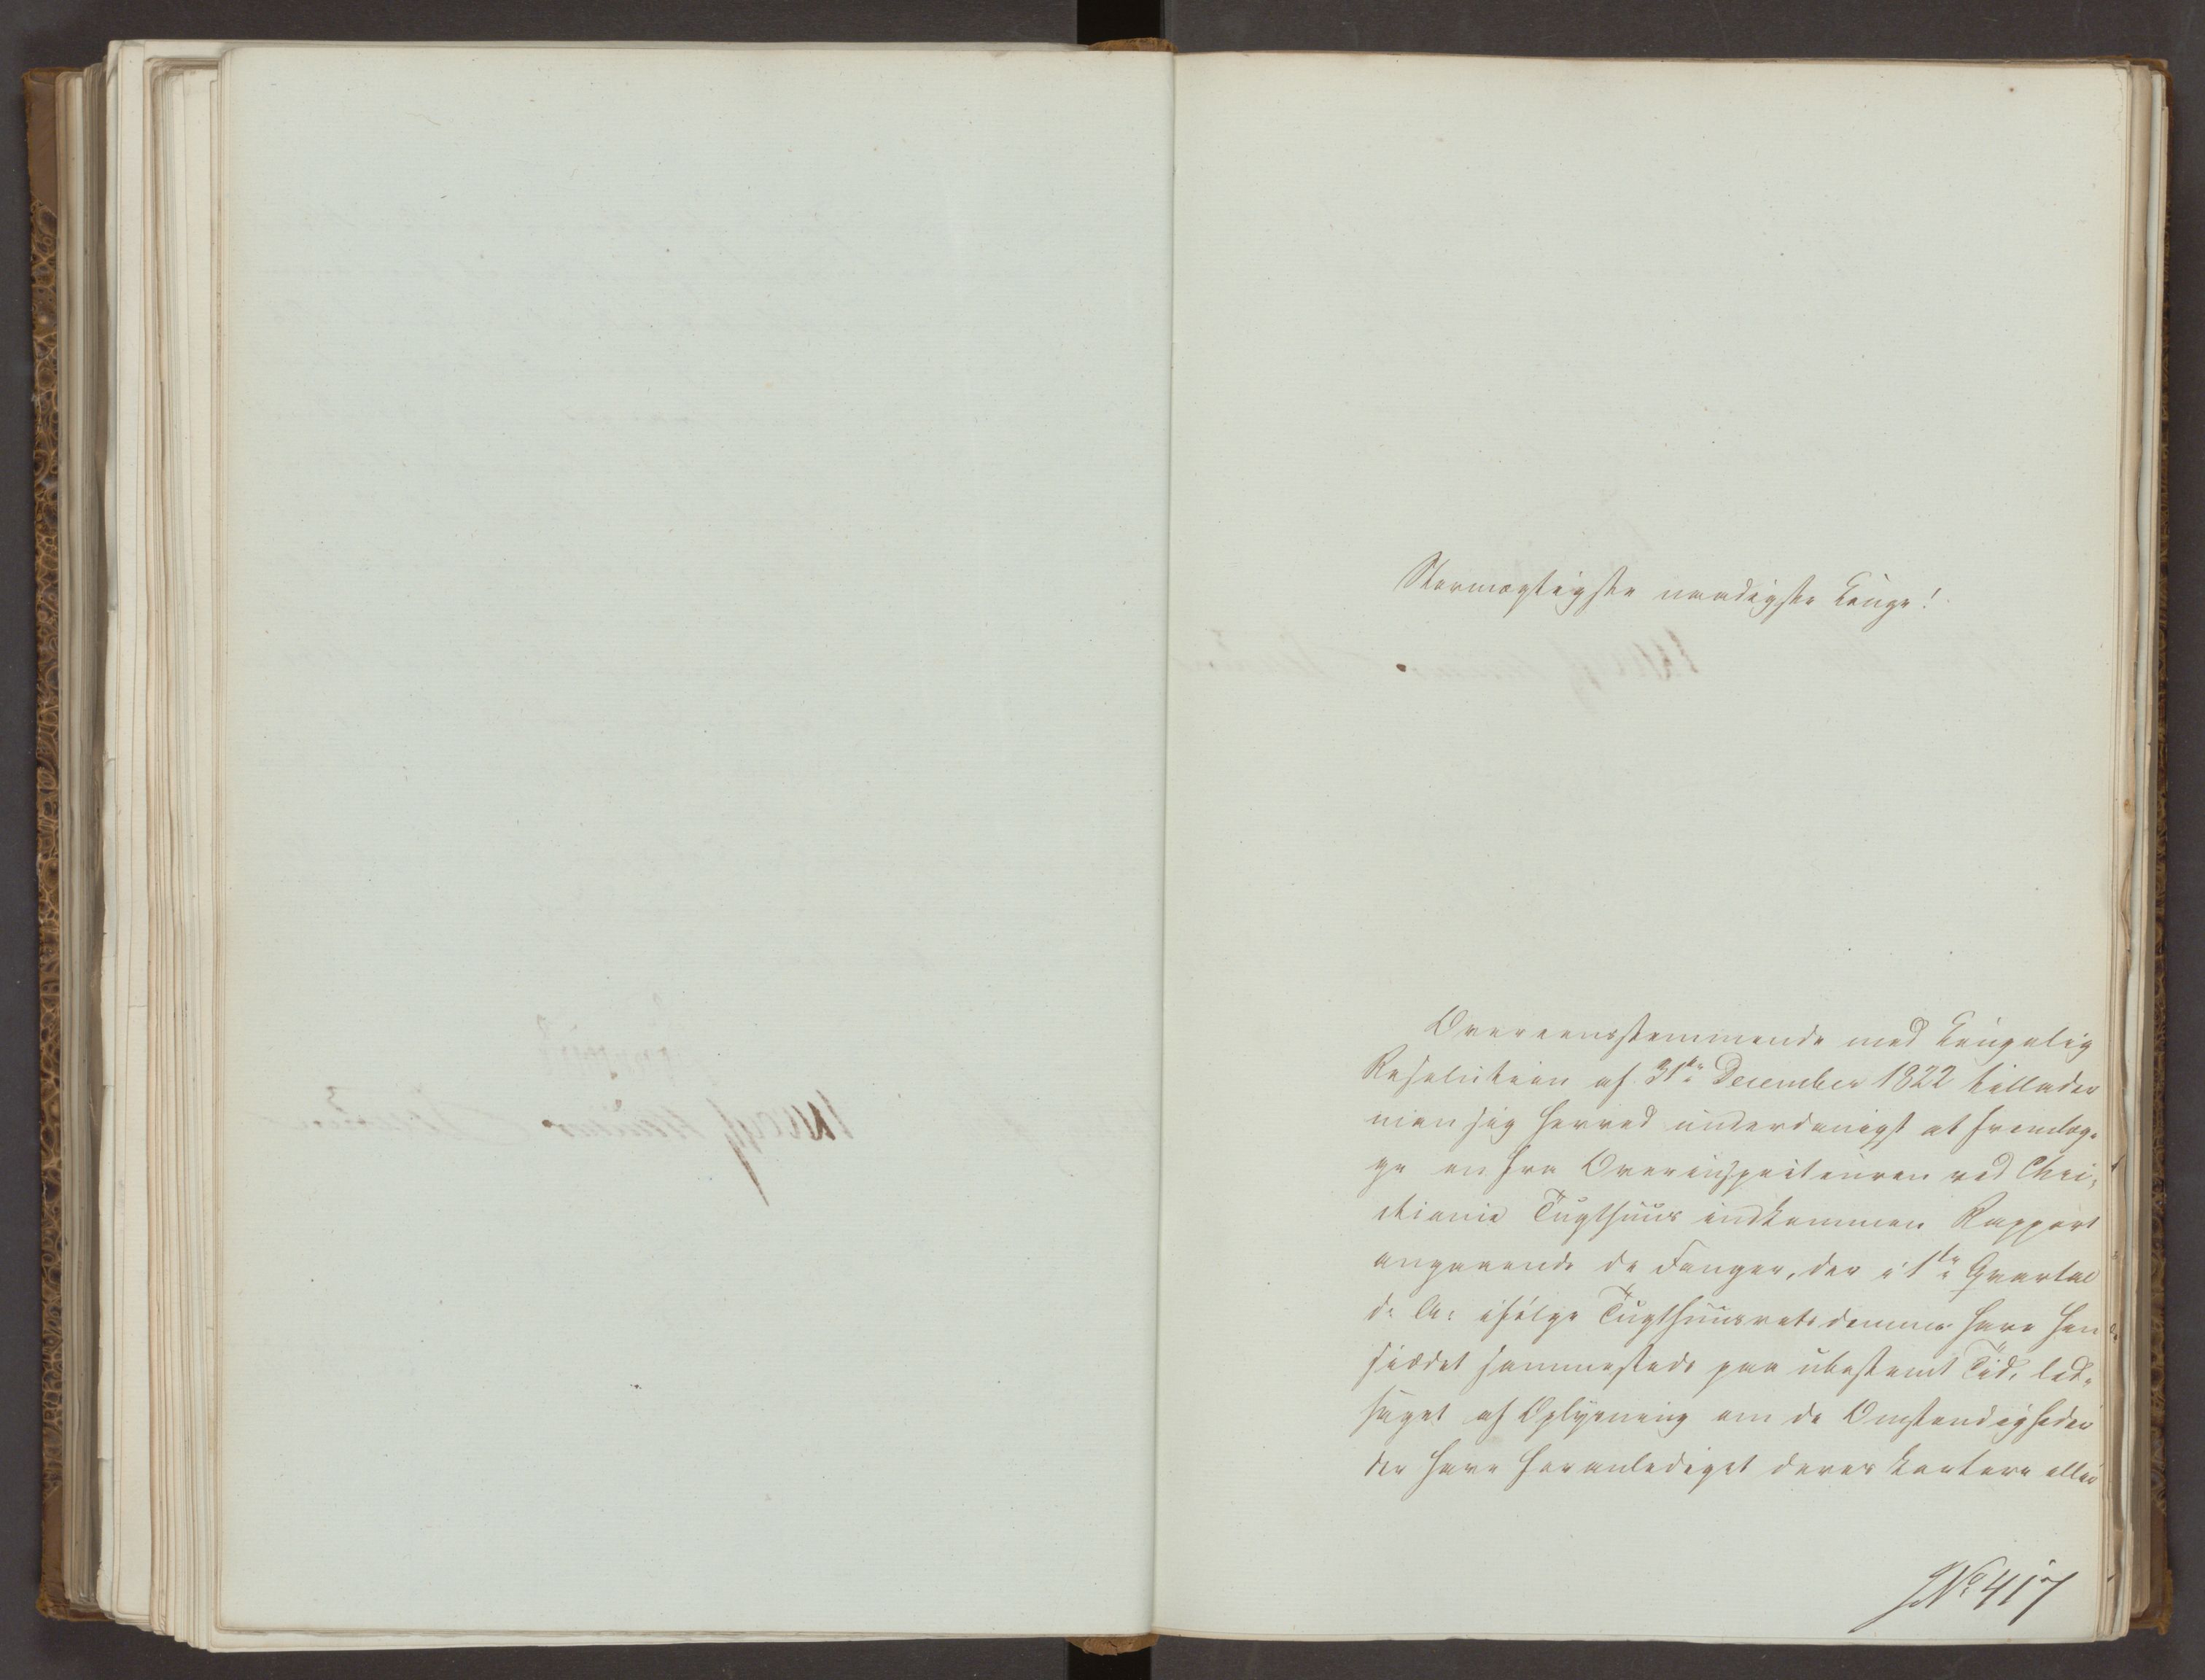 Stormægtigste naadigste Konge!
Overeensstemmende med Kongelig
Resolution af 31te December 1822 tillader
man sig herved underdanigst at fremlæg-
ge en fra Overinspecteuren ved Chri-
stiania Tugthuus indkommen Rapport
angaaende de Fanger, der i 1te Qvartal
d. A. ifølge Tugthuusretsdomme have hen-
siddet sammesteds paa ubestemt Tid, led-
saget af Oplysning om de Omstændigheder
der have foranlediget deres kortere eller
JNo 417